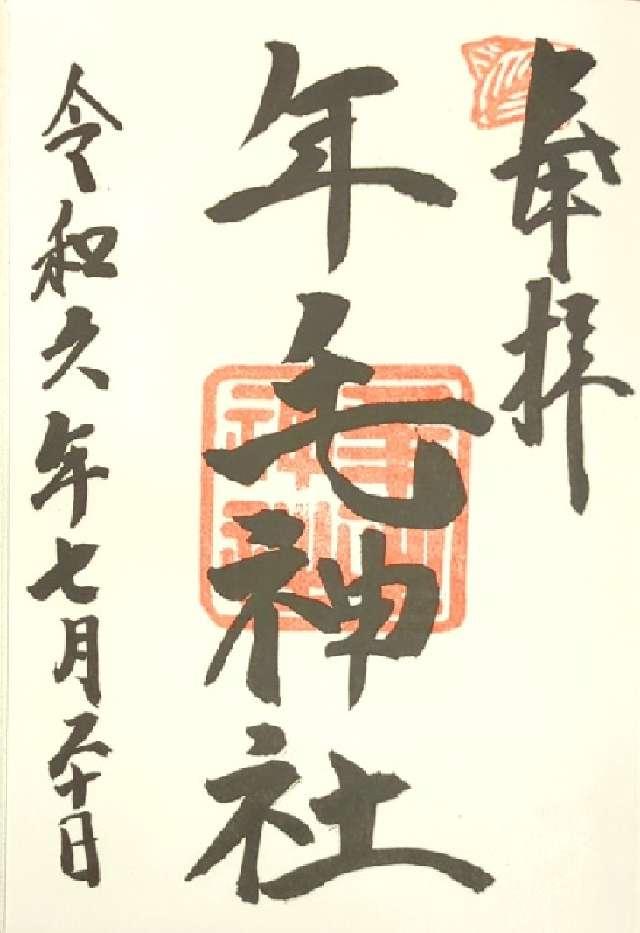 奉拝
年毛神社
令和六年七月二十日